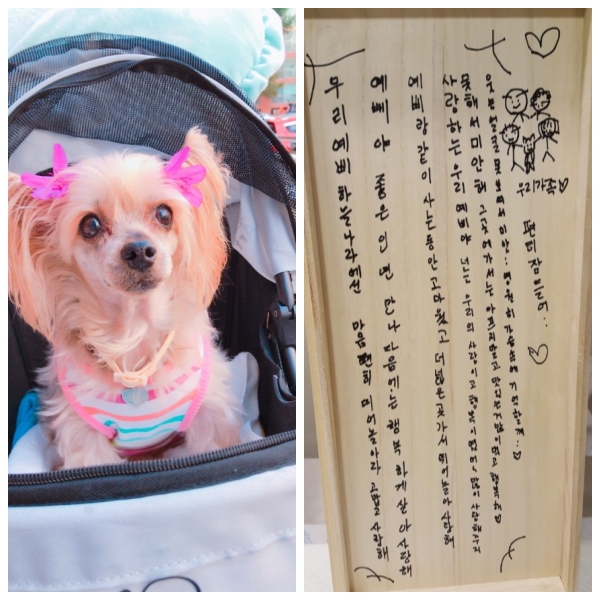 우리예삐하늘나라에선 마음편히 뛰어놀아라 고맙고 사랑해
예삐야 좋은인연 만나 다음에는 행복하게 살아 사랑해
예삐랑 같이 사는동안 고마웠고 더 넓은곳가서 뛰어놀아 사랑해
사랑하는 우리 예삐야 너는 우리의 사랑이고 행복이였어 많이 사랑해주지
못해서 미안해 그곳에가서는 아프지말고 맛있는거많이먹고 행복해♡
웃는얼굴 못보여줘서 미안.. 영원히 가슴속에 기억할게..♡
편히 잠들어..♡
우리가족♡